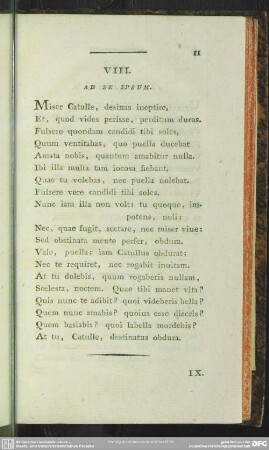 11
VIII.
AD SE IPSUM.
Miser Catulle, desinas ineptire,
Et, quod vides perisse, perditum ducas.
Fulsere quondam candidi tibi soles,
Quum ventitabas, quo puella ducebat
Amata nobis, quantum amabitur nulla.
Ibi illa multa tam iocosa fiebant,
Quae tu volebas, nec puella nolebat.
Fulsere vere candidi tibi soles.
Nunc iam illa non volt: tu quoque, im-
potens, noli:
Nec, quae fugit, sectare, nec miser vive:
Sed obstinata mente perfer, obdura.
Vale, puella: iam Catullus obdurat:
Nec te requiret, nec rogabit invitam.
At tu dolebis, quum rogaberis nullam,
Scelesta, noctem. Quae tibi manet vita?
Quis nunc te adibit? quoi videberis bella?
Quem nunc amabis? quoius esse diceris?
Quem basiabis? quoi labella mordebis?
At tu, Catulle, destinatus obdura.
IX.
DFG